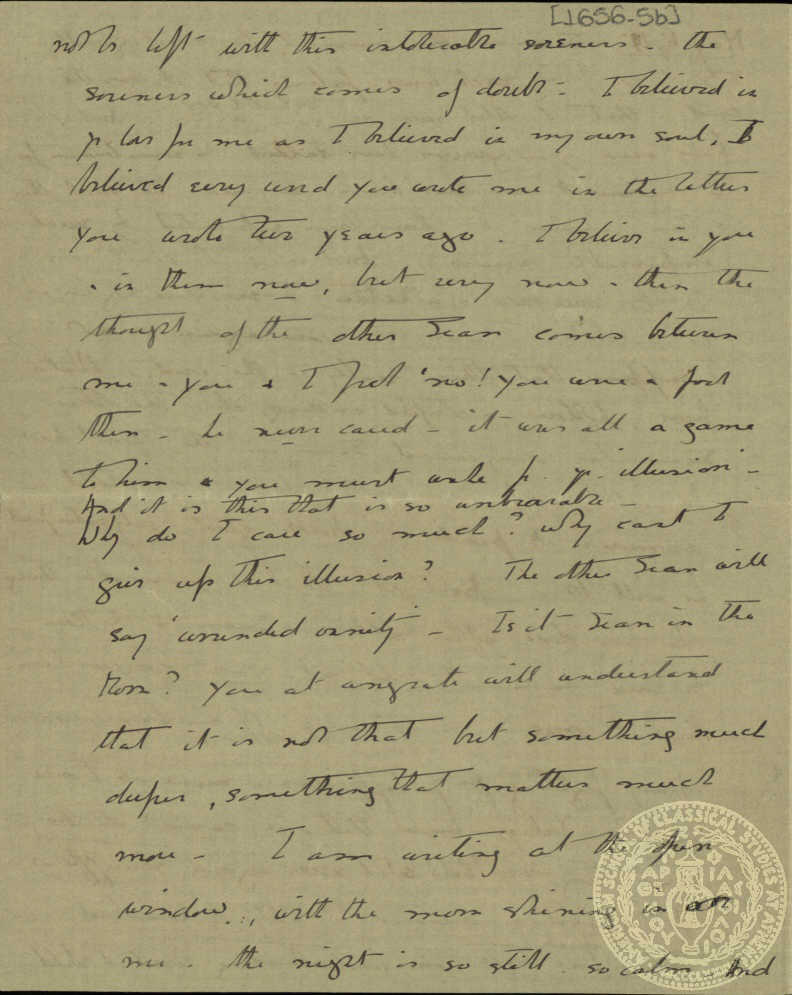 [1656-5b]
not be left with this intolerable soreness - the
soreness which comes of doubt - I believed in
yr love for me as I believed in my own soul, I
believed every word you wrote me in the letters
you wrote two years ago. I believe in you
+ in them now, but every now + then the
thought of the other Sean comes between
me + you + I feel 'no! you were a fool
then - he never cared - it was all a game
to him + you must wake fr. yr. illusion' -
And it is this that is so unbearable -
Why do I care so much? Why cant I
give up this illusion? The other Sean will
say 'wounded vanity' - Is it Sean in the
Moon? You at anyrate will understand
that it is not that but something much
deeper, something that matters much
more - I am writing at the open
window, with the moon shining in on
me - the night is so still so calm - And
SCHOOL OF CLASSICAL STUDIES AT ATHENS